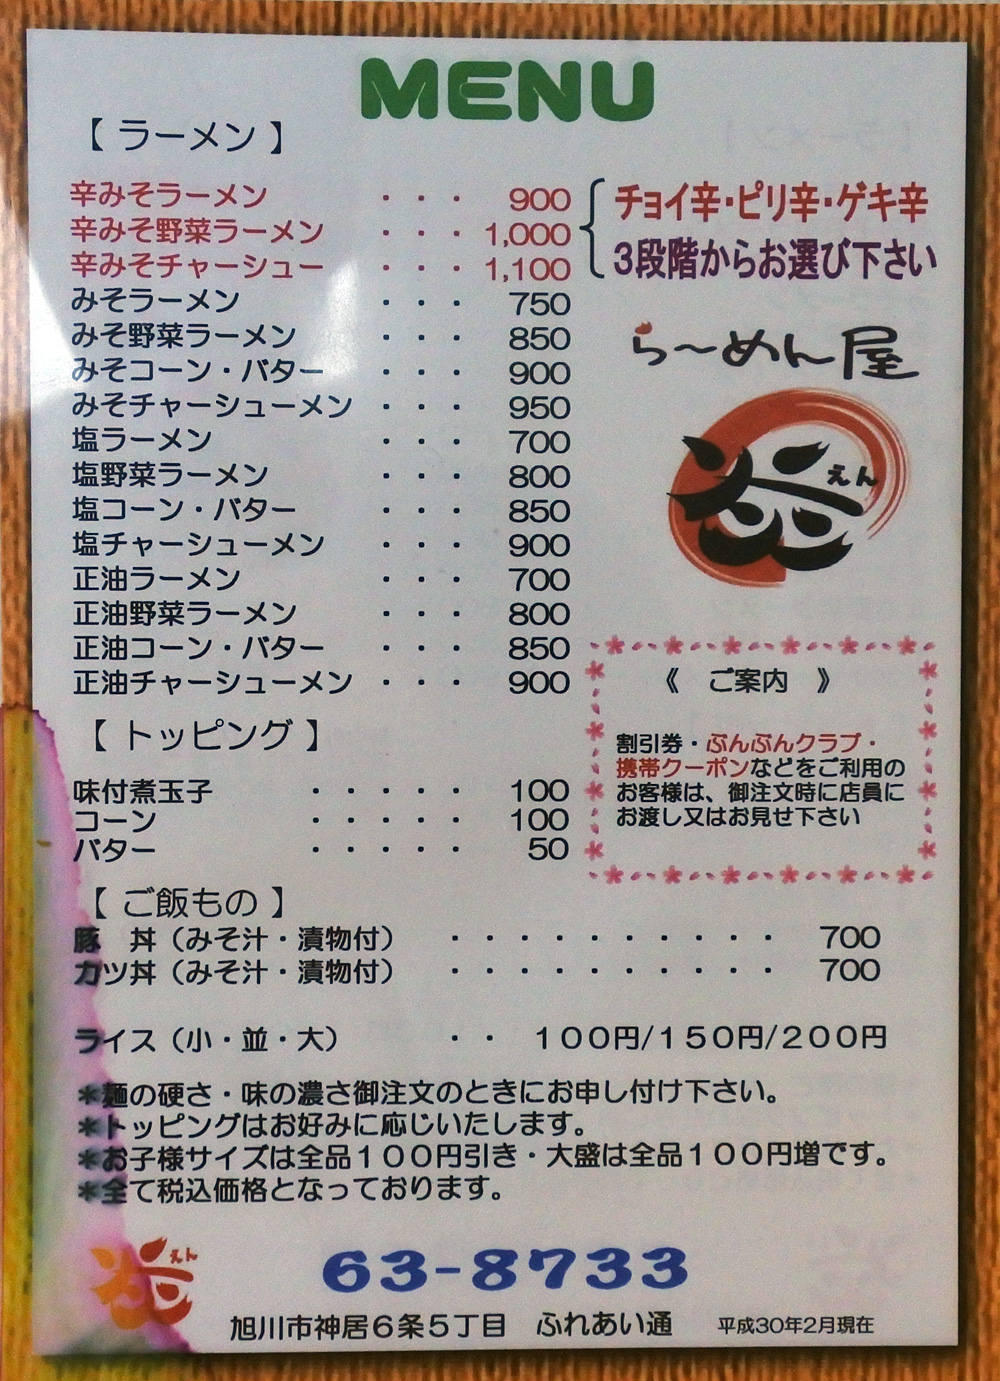 MENU
【 ラーメン 】
辛みそラーメン ・・・ 900
辛みそ野菜ラーメン ・・・ 1,000
辛みそチャーシュー ・・・ 1,100
チョイ辛・ピリ辛・ゲキ辛
3段階からお選び下さい
みそラーメン ・・・ 750
みそ野菜ラーメン ・・・ 850
みそコーン・バター ・・・ 900
みそチャーシューメン ・・・ 950
塩ラーメン ・・・ 700
塩野菜ラーメン ・・・ 800
塩コーン・バター ・・・ 850
塩チャーシューメン ・・・ 900
正油ラーメン ・・・ 700
正油野菜ラーメン ・・・ 800
正油コーン・バター ・・・ 850
正油チャーシューメン ・・・ 900
らーめん屋
えん
《 ご案内 》
割引券・ぶんぶんクラブ・
携帯クーポンなどをご利用の
お客様は、御注文時に店員に
お渡し又はお見せ下さい
【 トッピング 】
味付煮玉子 ・・・・・ 100
コーン ・・・・・ 100
バター ・・・・・ 50
【 ご飯もの 】
豚 丼（みそ汁・漬物付） ・・・・・・・・・・ 700
カツ丼（みそ汁・漬物付） ・・・・・・・・・・ 700
ライス（小・並・大） ・・ 100円/150円/200円
＊麺の硬さ・味の濃さ御注文のときにお申し付け下さい。
＊トッピングはお好みに応じいたします。
＊お子様サイズは全品100円引き・大盛は全品100円増です。
＊全て税込価格となっております。
えん
63-8733
旭川市神居6条5丁目 ふれあい通 平成30年2月現在